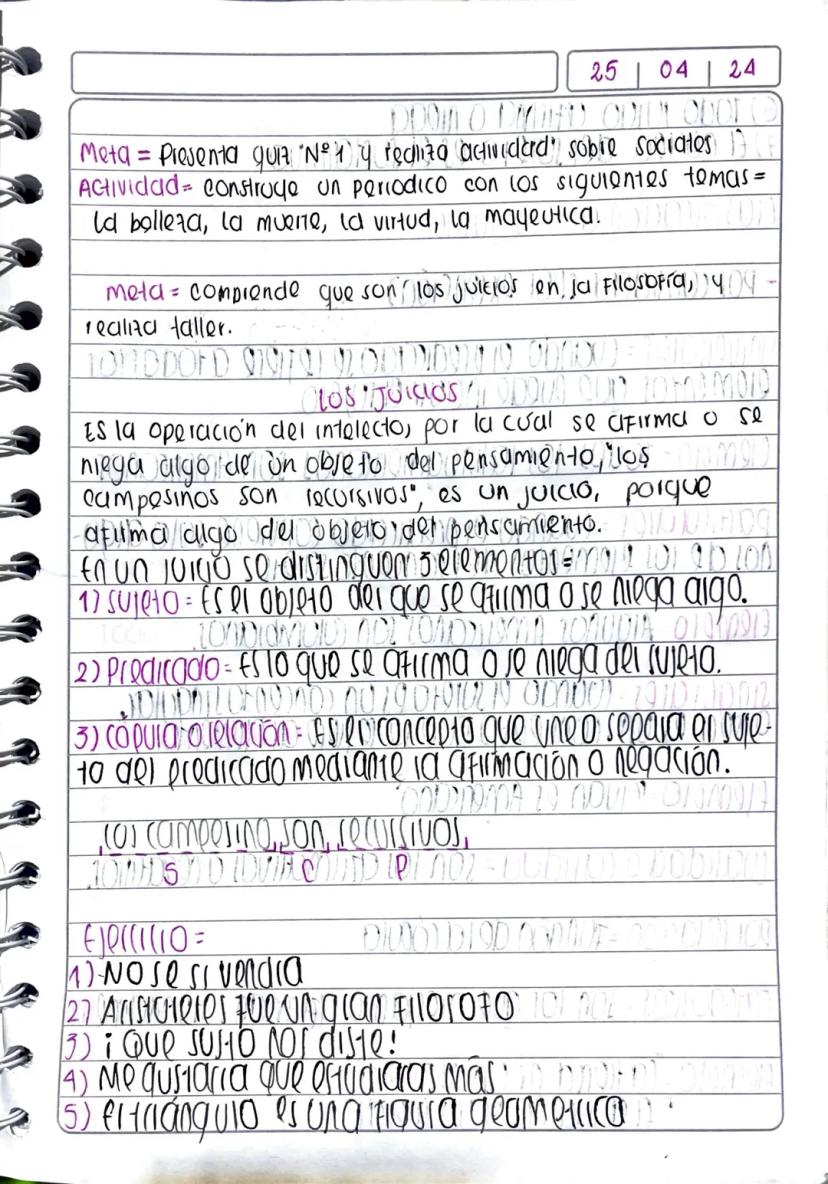 25 | 04 | 24
Meta = Presenta quiz "Nº 1 y realiza actividad" sobre socrates
Actividad = construye un periodico con los siguientes temas =
la belleza, la muerte, la virtud, la mayeutica.
Meta = comprende que son los juicios en la Filosofía, y
realiza taller.
Los Juicios
Es la operación del intelecto, por la cual se afirma o se
niega algo de un objeto del pensamiento, "los
campesinos son recursivos", es un juicio, porque
afirma algo del objeto del pensamiento.
En un juicio se distinguen 3 elementos =
1) Sujeto = Es el objeto del que se afirma o se niega algo.
2) Predicado = Es lo que se afirma o se niega del sujeto.
3) Cópula o relación = Es el concepto que une o separa el suje-
to del predicado mediante la afirmación o negación.
los campesino son recursivos
S C P
Ejercicio =
1) No se si vendra
2) Aristoteles fue un gran Filosofo
3) ¡Que susto nos diste!
4) Me gustaria que estudiaras más
5) El triángulo es una figura geometrica